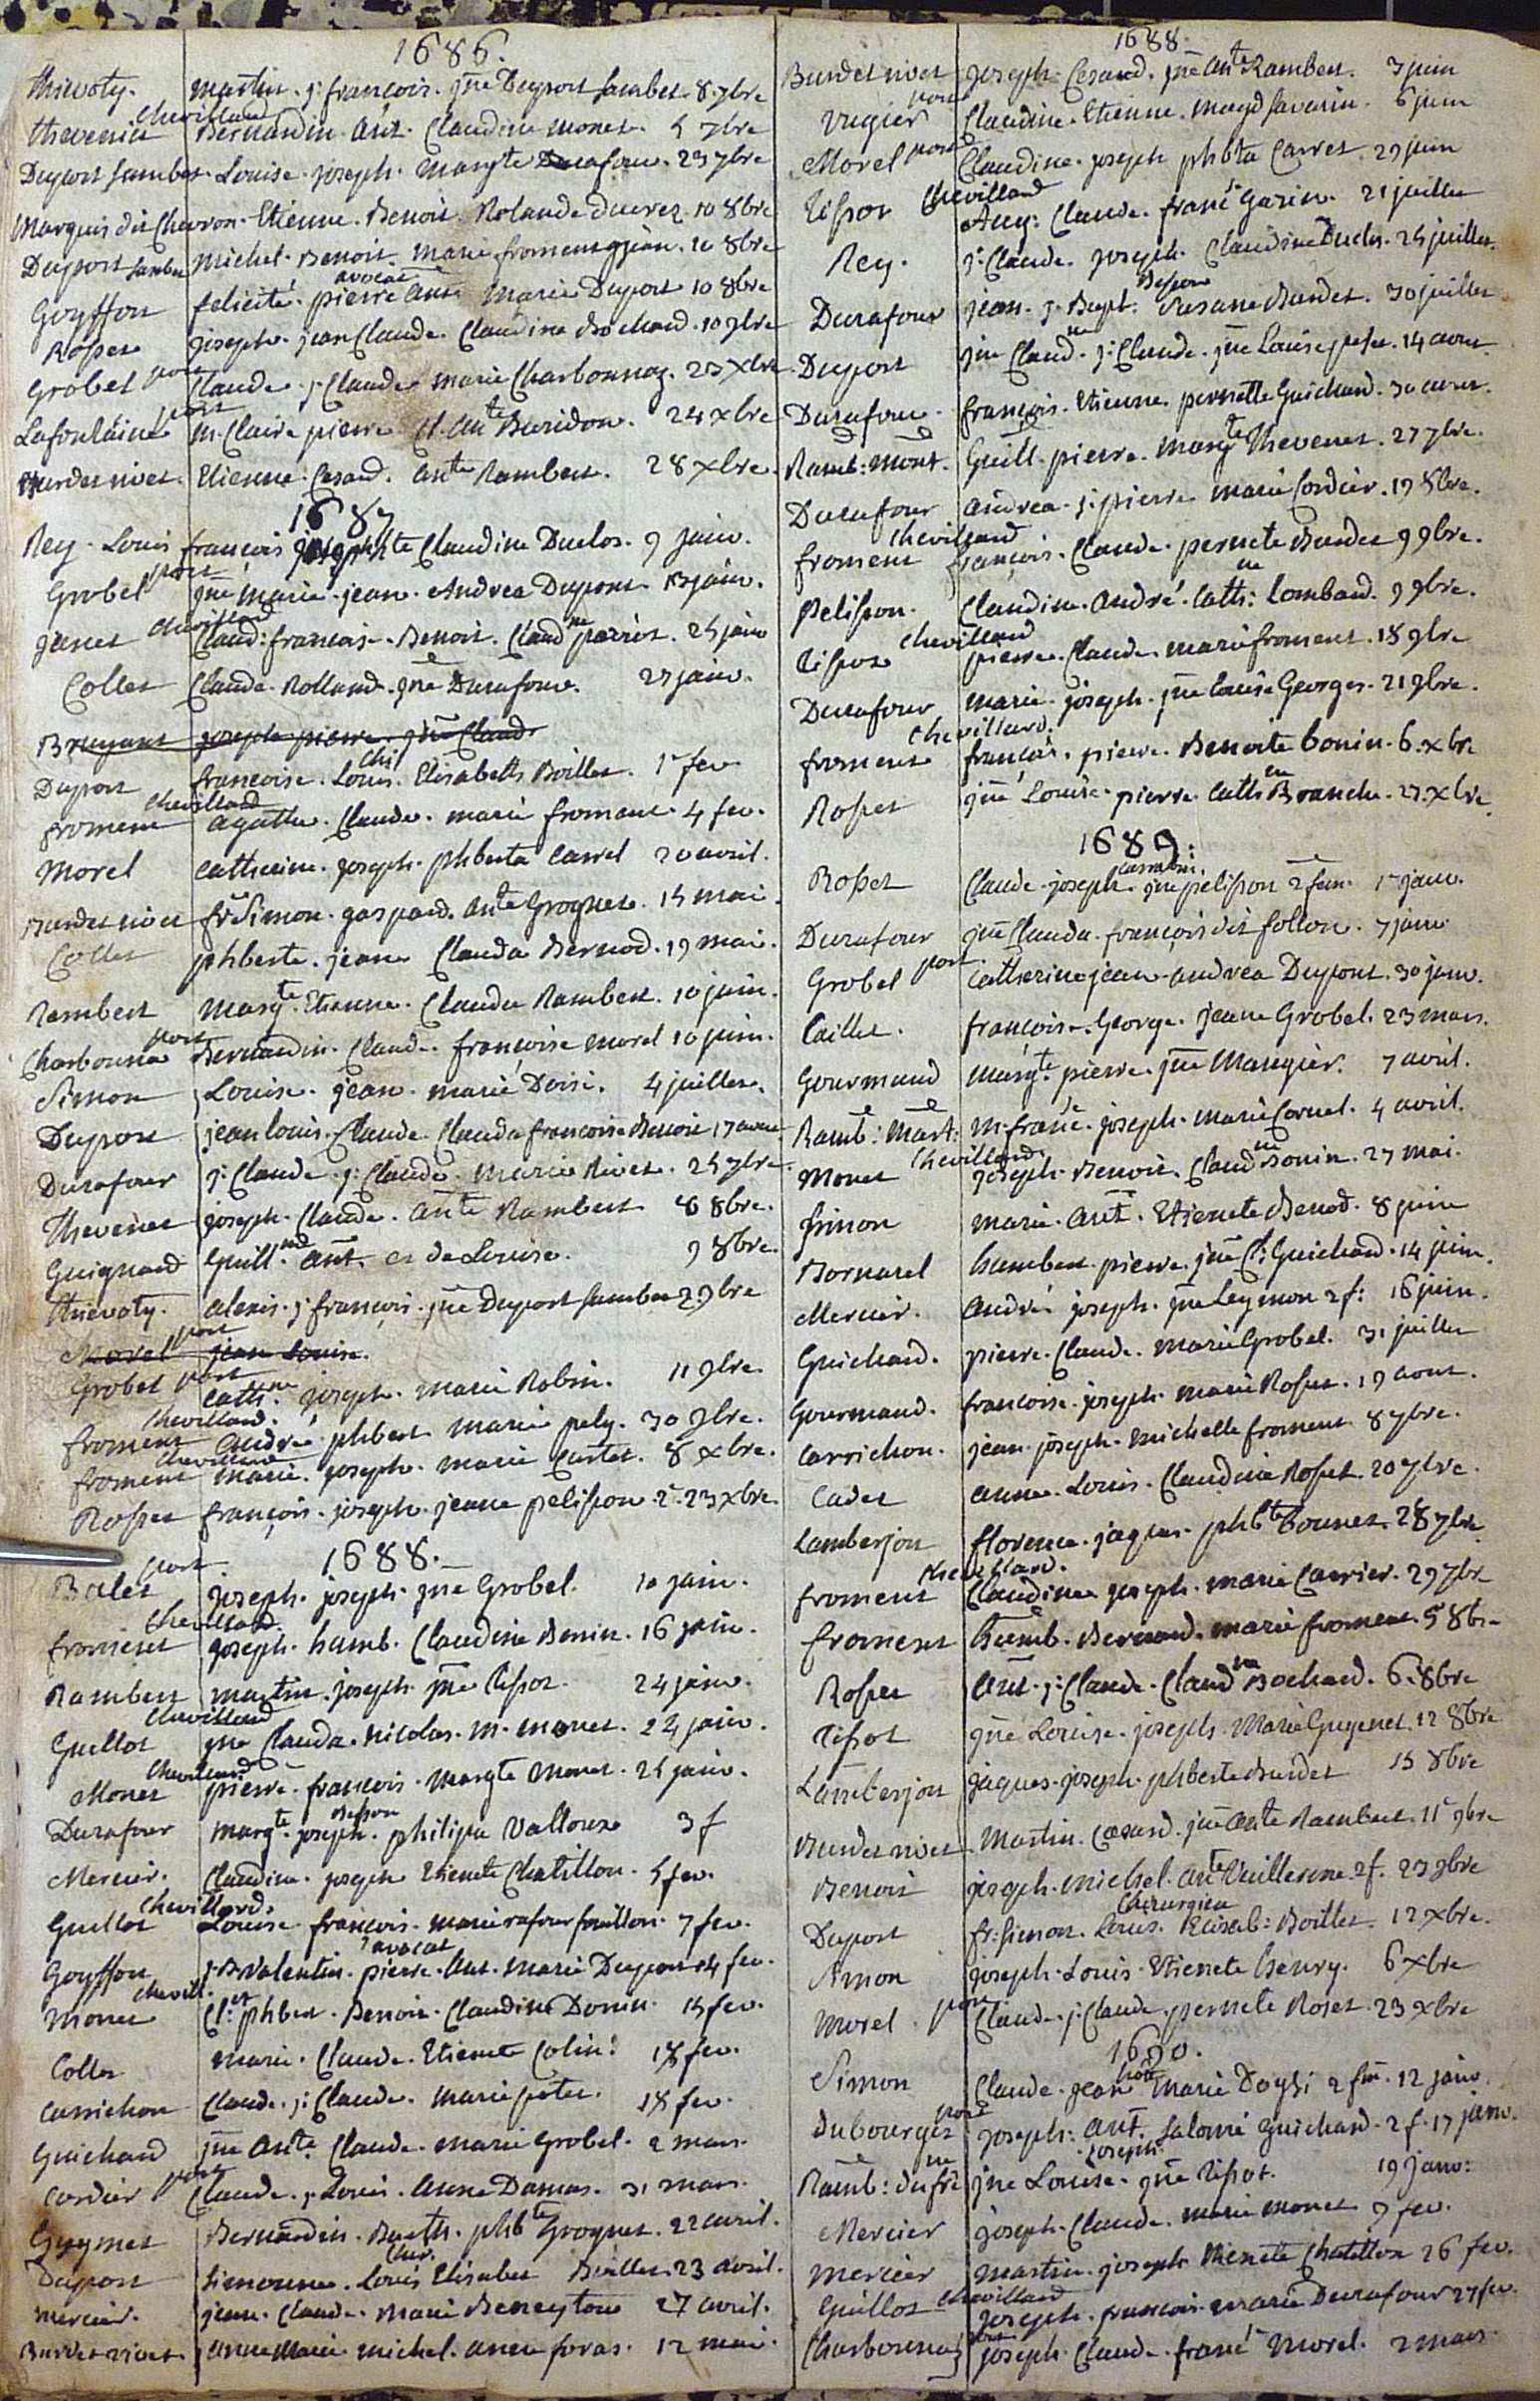 1686.
Thievoty. martin. j: françois. jne Duport Sambet. 8. 7bre
Thevenin Chevilland Bernardin. Ant. Claudine monet. 5 7bre
Duport Sambet. Louise. joseph. Margte Durafour. 23 7bre
Marquis dit Chevron. Etienne. Benoit. Rolande Ducrez. 10 8bre
Duport Sambet Michel. Benoit. Marie froment 10 8bre
Goyffon felicité. pierre Ant avocat Marie Duport 10 8bre
Rosset joseph. jean Claude. Claudine Bochard. 10 9bre
Grobel port Claude. j: Claude marie Charbonnaz. 23 Xbre
Lafontaine port M. Claire pierre Cl. Ante Buridon. 24 xbre
Burdet nivet. Etienne. Cesard. ante Rambert. 28 xbre.
1687
Rey. Louis françois Claudine Duclos. 9 janv.
Grobel port jne marie. jean. Andrea Dupont 13 janv.
Janet Chevilland Claud: francoise. Benoit. Claudne 25 janv
Collet Claude. Rolland. jne Durafour. 27 janv.
Bruyant joseph pierre jne Claud.
Duport francoise. Louis. Chi Elisabeth Boillet. 1r fev
froment Chevilland agathe. Claude. marie froment. 4 fev.
Morel catherine. joseph. phberta Carrel 20 avril.
Burdet nivet fr. Simon. gaspard. ante Grognet. 15 mai.
Collet phberte. jean Clauda Bernod. 19 mai.
Rambert Margte. Etienne. Clauda Rambert. 10 juin.
Charbonna port Bernardin. Claude. françoise morel 10 juin.
Simon Louise. jean. marie Doisi. 4 juillet.
Dupont jean louis. Claude. Clauda francoise Benoit 17 aout
Durafour j: Claude. j: Claude. Marie Rivet. 25 7bre.
Thevenet joseph. Claude. ante Rambert 8 8bre.
Guignard Guill. Ant. et de Louise. 9 8bre.
Thievoty. alexis. j françois. jne Duport Sambet 2. 9bre
Morel port jean Louise.
Grobel port Cathne. joseph. Marie Robin. 11 9bre.
froment Chevilland. André. phbert. Marie pely. 30 9bre.
froment Chevilland marie. joseph. marie Curtet. 8 xbre.
Rosset françois. joseph. jeane pelisson. 2. 23 xbre.
1688.
Balet port joseph. joseph. jne Grobel. 10 janv.
froment Chevilland. joseph. humb. Claudine Benin. 16 janv.
Rambert martin. joseph. jne Tissot. 24 janv.
Guillot Chevilland jne Clauda. Nicolas. M. monet. 24 janv.
Monet Chevilland pierre. françois. Margte Monet. 25 janv.
Durafour Margte. joseph. Besson philippa Valloux 3 f
Mercier. Claudine. joseph Etienete Chatillon. 5 fev.
Guillot Chevilland. Louise. françois. marie rafour fouillon. 7 fev.
Goyffon j. B. Valentin. pierre. Ant. avocat Marie Dupont 14 fev.
Monet Chevill. Cl: et phbert. Benoit. Claudine Donin. 15 fev.
Collet marie. Claude. Etienete Colin. 18 fev.
Carrichon Claude. j: Claude. marie peter. 18 fev.
Guichard jne Ante. Claude. marie Grobel. 2 mars.
Cordier port Claude. j. Louis. Anne Damas. 31 mars.
Guymet Bernardin. Barth. phbte Grognet. 22 avril.
Dupont Simonne. Louis Chir. Elisabet Boillet. 23 avril.
Mercier. jean. Claude. Marie Beneyton 27 avril.
Burdet nivet. Anne Marie. michel. Anna foras. 12 mai.
1688.
Burdet nivet joseph. Cesard. jne Ante Rambert. 3 juin
Vugier port Claudine. Etienne. Margd Savarin. 6 juin
Morel port Claudine. joseph phbta Carret. 29 juin
Tissot Chevilland Aug: Claude. franc Garin. 21 juillet
Rey. j: Claude. joseph. Claudine Duclos. 25 juillet.
Durafour jean. j. Bapt. Besson Susane Burdet. 30 juillet
Duport jne Claudne. j: Claude. jne Louise 14 aout.
Durafour. françois. Etienne. pernette Guichard. 30 aout.
Ramb: Mont. Guill. pierre. Margte Thevenet. 27 7bre.
Durafour andrea. j. pierre marie Cordier. 19 8bre.
froment Chevilland françois. Claude. pernete Burdet 9 9bre.
Pelisson. Claudine. André. Cathne: Lombard. 9 9bre.
Tissot Chevilland pierre. Claude. marie froment. 18 9bre
Durafour marie. joseph. jne louise Georges. 21 9bre.
froment Chevilland. françois. pierre. Benoite bonin. 6. xbre
Rosset jne Louise. pierre. Cathne Branche. 27. xbre
1689.
Rosset Claude. joseph. jne pelisson 2 fem. 1r janv.
Durafour jne Clauda. françois dit follon. 7 janv
Grobel port. Catherine jean. andrea Dupont. 30 janv.
Caillet. françoise. George. jeane Grobel. 23 mars.
Gourmand margte. pierre. jne Mangier. 7 avril.
Ramb: Mart: M. franc. joseph. Marie Cornet. 4 avril.
Monet Chevilland joseph. Benoit. Claudne Bonin. 27 mai.
Simon marie. Ant. Etienete Benod. 8 juin
Bornarel humbert. pierre. jne Cl: Guichard. 14 juin.
Mercier. André joseph. jne Leymon 2 f: 16 juin.
Guichard. pierre. Claude. Marie Grobel. 31 juillet
Gourmand. françoise. joseph. Marie Rosset. 19 aout.
Carrichon. jean. joseph. Michelle froment. 8 7bre.
Cadet anne. Louis. Claudine Rosset. 20 7bre.
Lamberjon florence. jaques. phbte bounet. 28 7bre
froment Chevilland. Claudine joseph. marie Carrier. 29 7bre
froment humb. Bernard. marie froment. 5 8bre
Rosset Ant. j: Claude. Claudne Bochard. 6. 8bre
Tissot jne Louise. joseph. Marie Guyenet. 12 8bre
Lamberjon jaques. joseph. phberte Burdet 15 8bre
Burdet nivet Martin. Cæsard. jne Ante Rambert. 11 9bre
Benoit joseph. michel. Ante Vuillerme. 2f. 23 9bre
Duport fr: Simon. Louis. Chirurgien Elisab: Boillet. 12 xbre.
Simon joseph. Louis. Etienete henry. 6 xbre
Morel port Claude. j: Claude. pernete Roset. 23 xbre
1690.
Simon Claude. jean marie Doysi 2 fm. 12 janv
Dubourget port joseph: Ant. Salomé Guichard. 2 f. 17 janv.
Ramb: joseph. jne Louise. jne Tissot. 19 janv:
Mercier joseph. Claude. marie monet 9 fev.
Mercier martin. joseph Etienete Chatillon 26 fev.
Guillot Chevilland joseph. françois. marie Durafour 27 fev.
Charbonnaz port joseph. Claude. franc Morel. 2 mars.